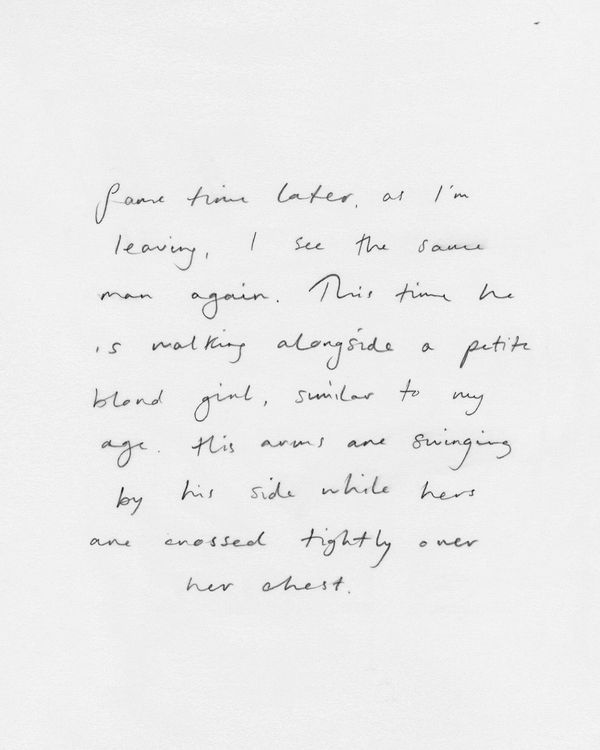 Some time later, as I'm
leaving, I see the same
man again. This time he
is walking alongside a petite
blond girl, similar to my
age. His arms are swinging
by his side while hers
are crossed tightly over
her chest.